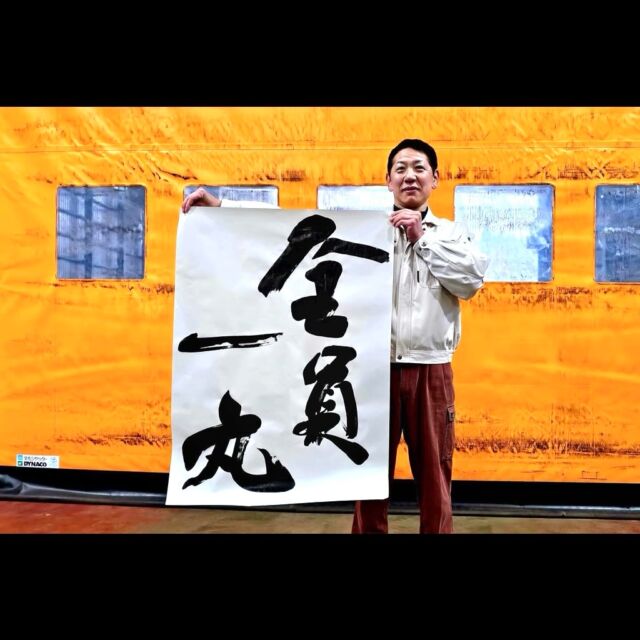 全員
一丸
DYNACO